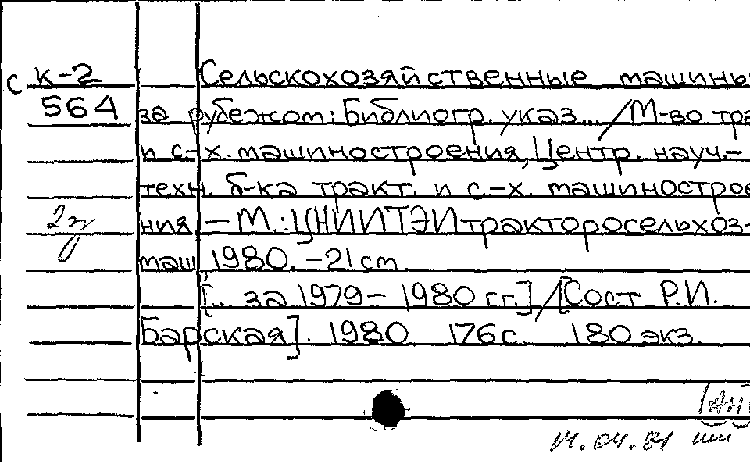 с к-2 Сельскохозяйственные машины
564 за рубежом: Библиогр. указ... / М-во тра
и с.-х. машиностроения, Центр. науч.-
техн. б-ка тракт. и с.-х. машинострое
2э ния. - М.: ЦНИИТЭИтракторосельхоз-
маш, 1980. - 21 cm.
[.. за 1979 - 1980 гг.] / [Сост. Р.И.
Барская]. 1980. 176с. 180 экз.
14.04.81